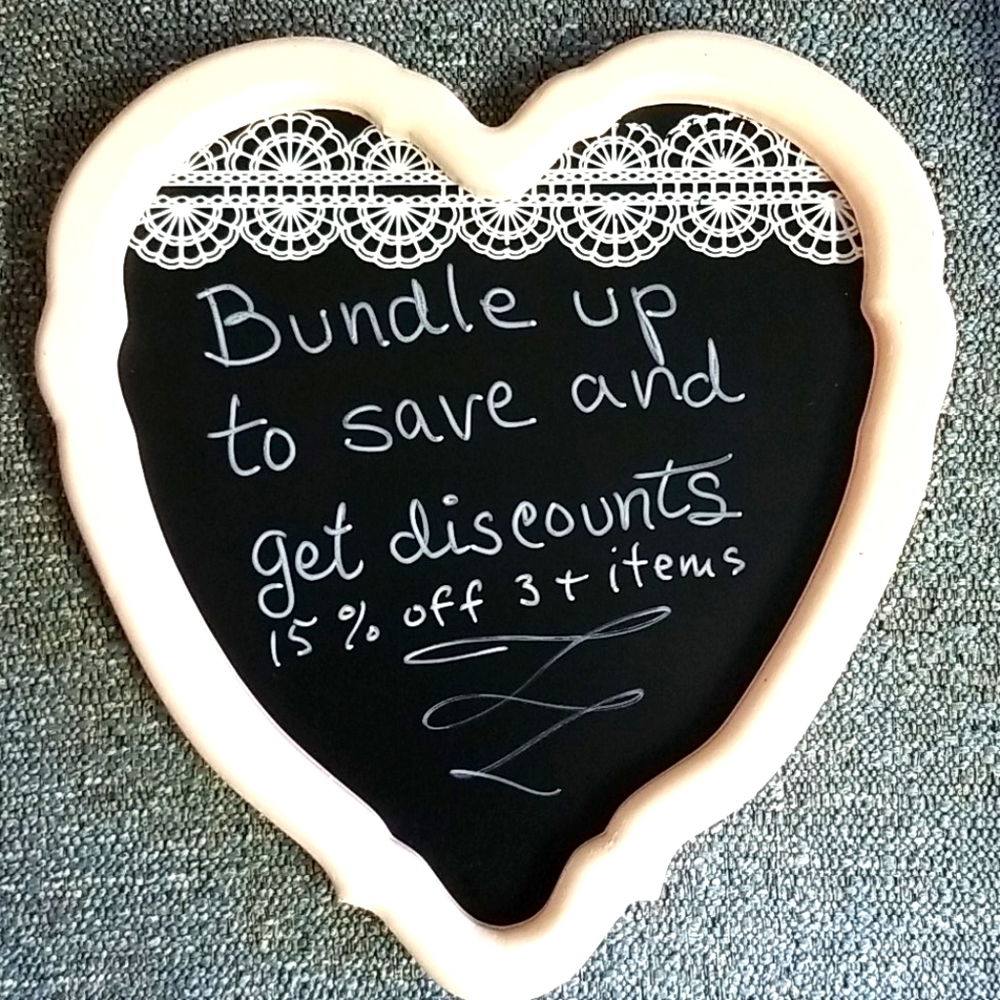 Bundle up
to save and
get discounts
15% off 3+ items